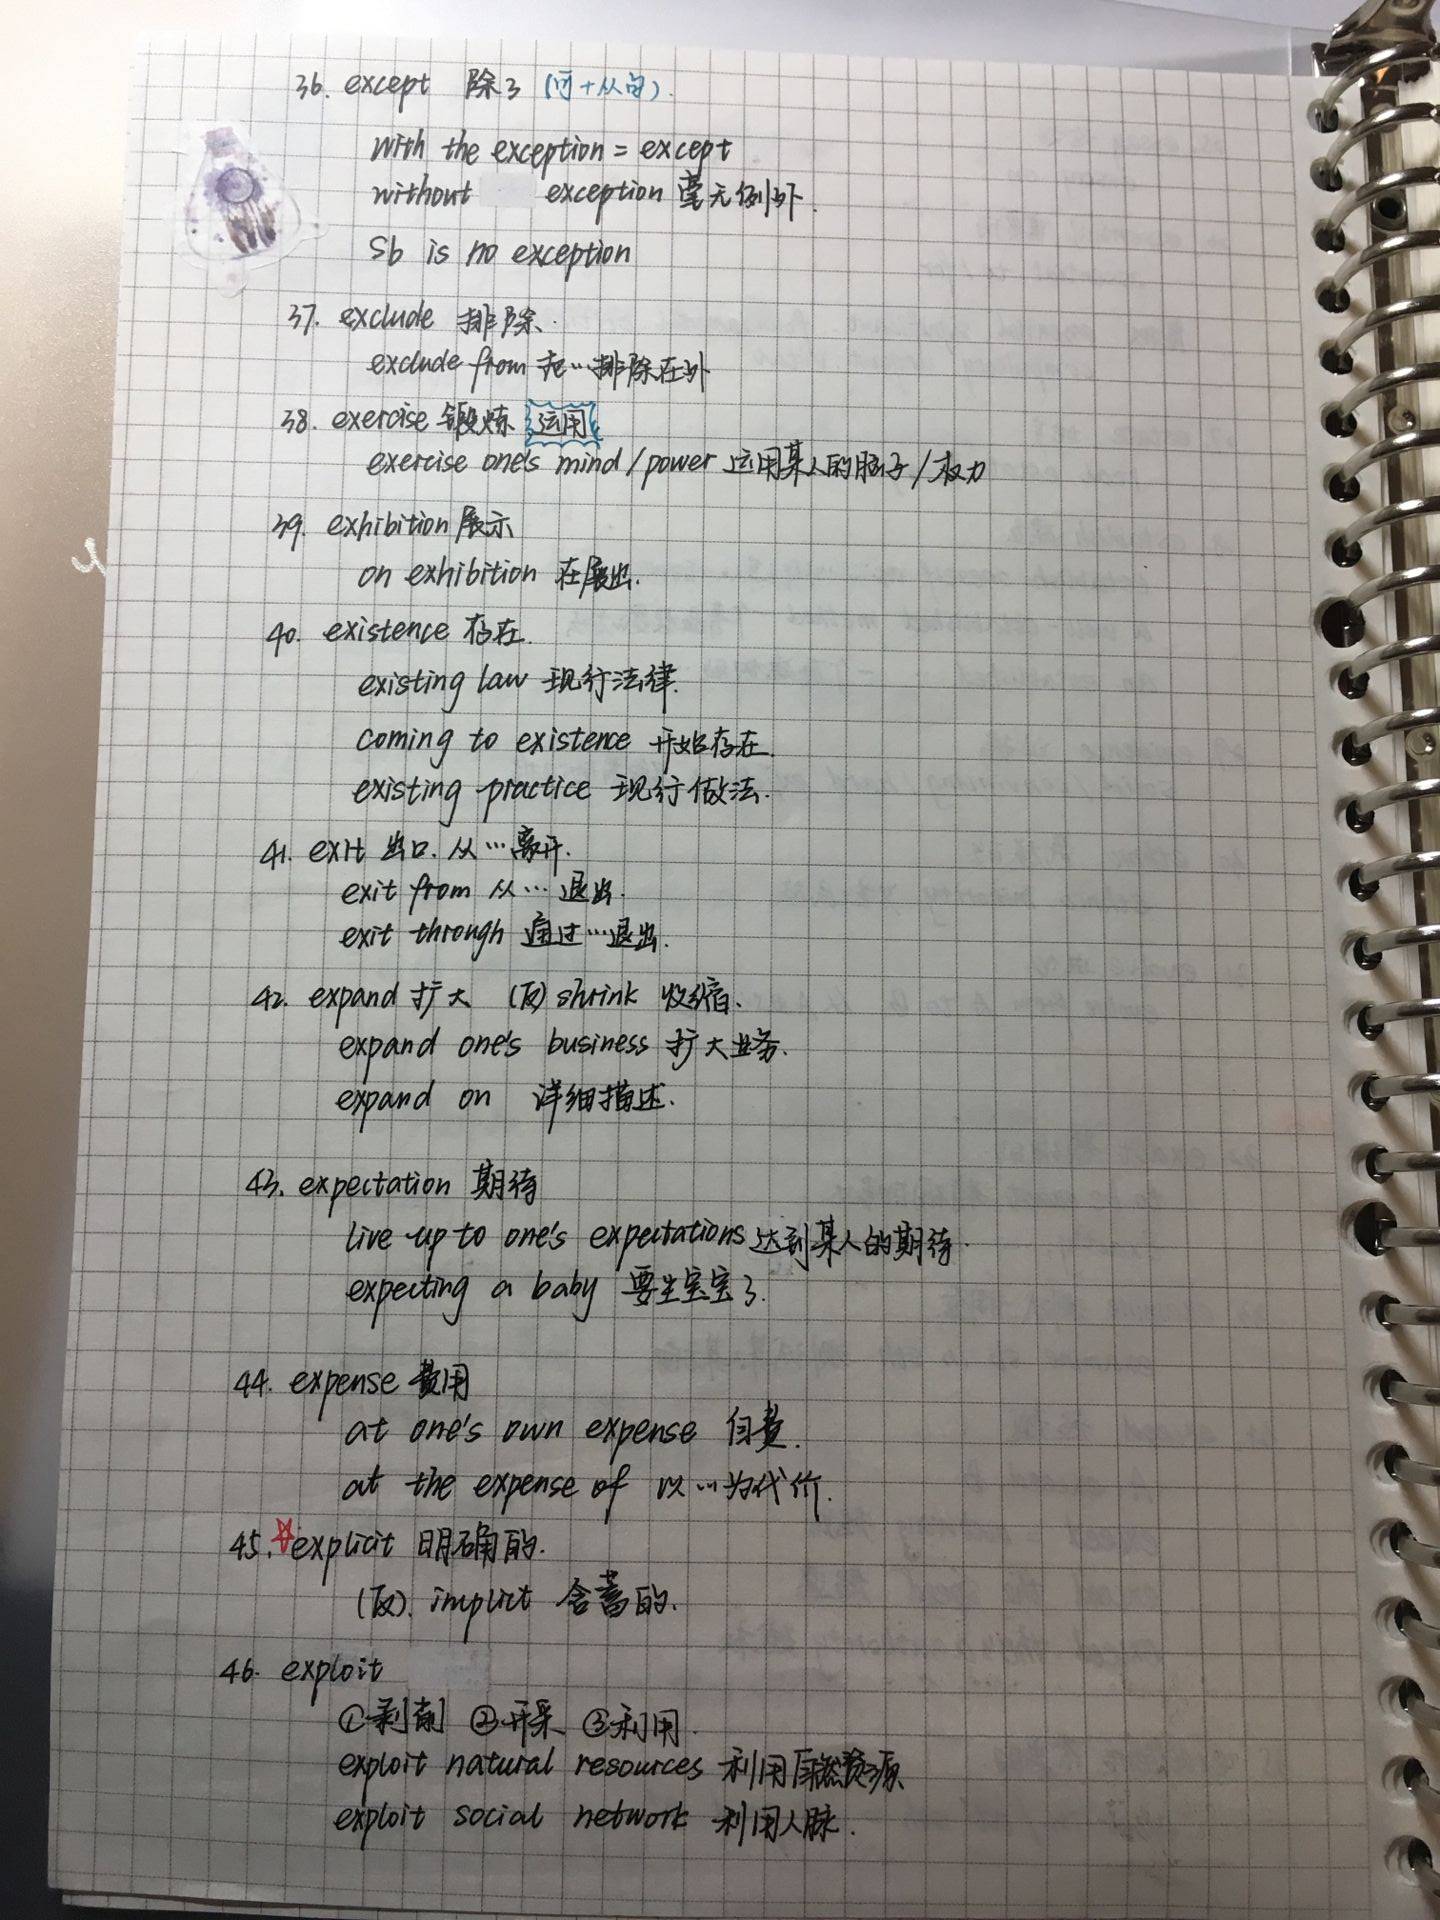 36. except 除了 (可+从句).
with the exception = except
without exception 毫无例外.
Sb is no exception
37. exclude 排除.
exclude from 把…排除在外
38. exercise 锻炼 运用
exercise one's mind/power 运用某人的脑子/权力
39. exhibition 展示
on exhibition 在展出.
40. existence 存在.
existing law 现行法律.
coming to existence 开始存在.
existing practice 现行做法.
41. exit 出口. 从…离开.
exit from 从…退出.
exit through 通过…退出.
42. expand 扩大 (反) shrink 收缩.
expand one's business 扩大业务.
expand on 详细描述.
43. expectation 期待
live up to one's expectations 达到某人的期待.
expecting a baby 要生宝宝了.
44. expense 费用
at one's own expense 自费.
at the expense of 以…为代价.
45. ☆explicit 明确的.
(反). implict 含蓄的.
46. exploit
①剥削 ②开采 ③利用.
exploit natural resources 利用自然资源
exploit social network 利用人脉.